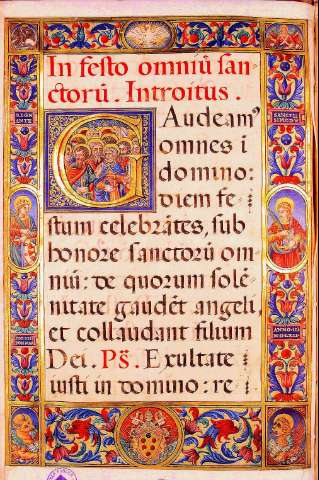 In festo omniũ san-
ctorũ. Introitus.
Gaudeam⁹
omnes i
domino:
diem fe
stum celebrãtes, sub
honore sanctorũ om
niũ: de quorum solẽ
nitate gaudẽt angeli,
et collaudant filium
Dei. Ps̃. Exultate
iusti in domino: re